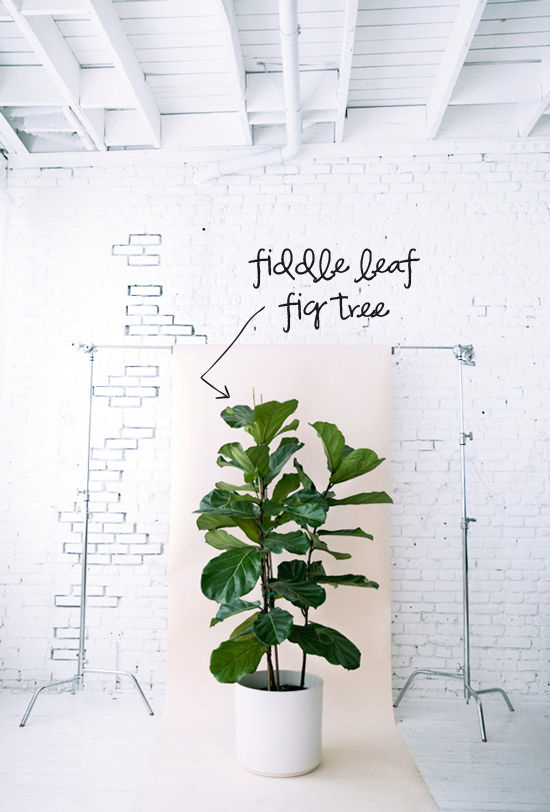 fiddle leaf
fig tree